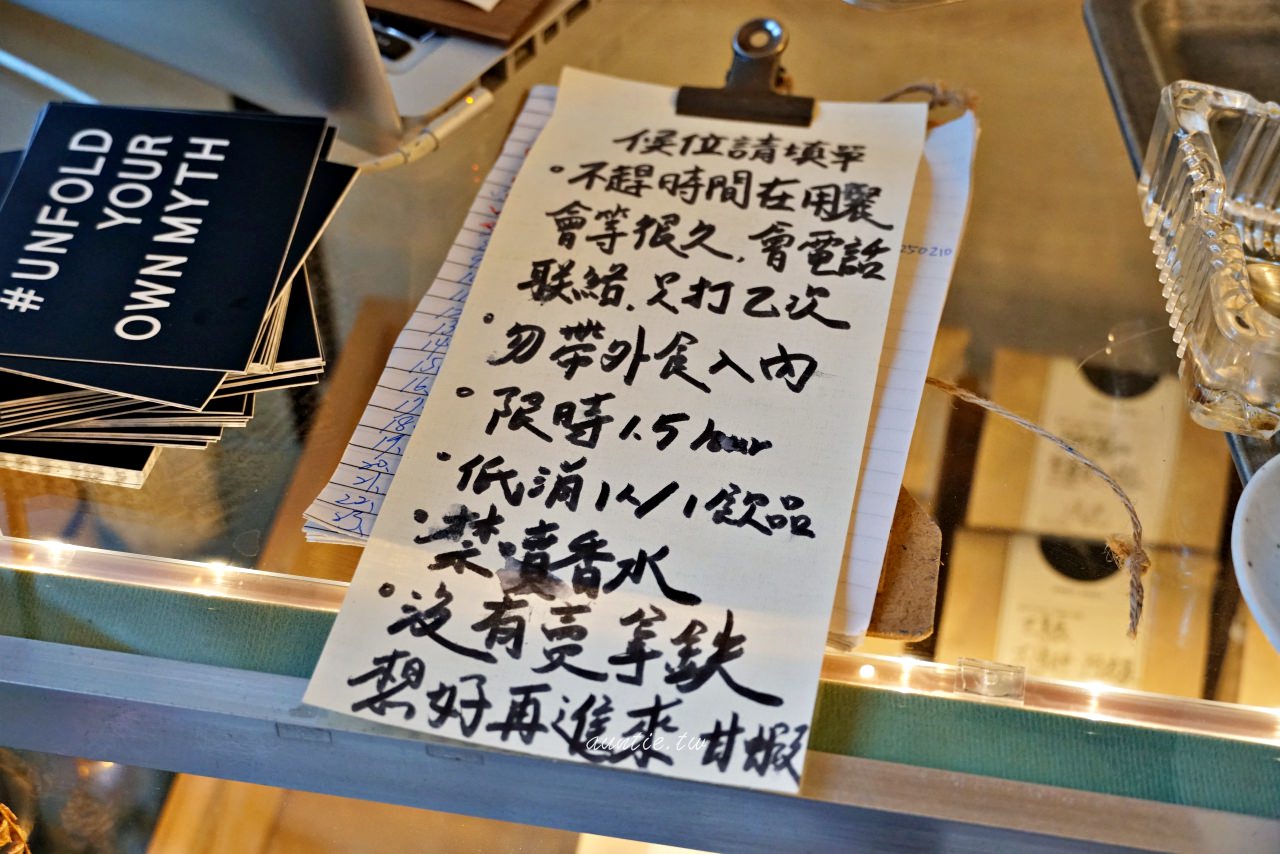 #UNFOLD
YOUR
OWN MYTH
候位請填單
°不趕時間在用餐
會等很久,會電話
联絡,只打乙次
°勿帶外食入內
°限時1.5 hour
·低消1人/1飲品
·禁噴香水
°沒有売拿鉄
想好再進來 甘蝦
250210
14.
15.
16.
17.
18.
19.
20.
21.
22.
23.
auntie.tw